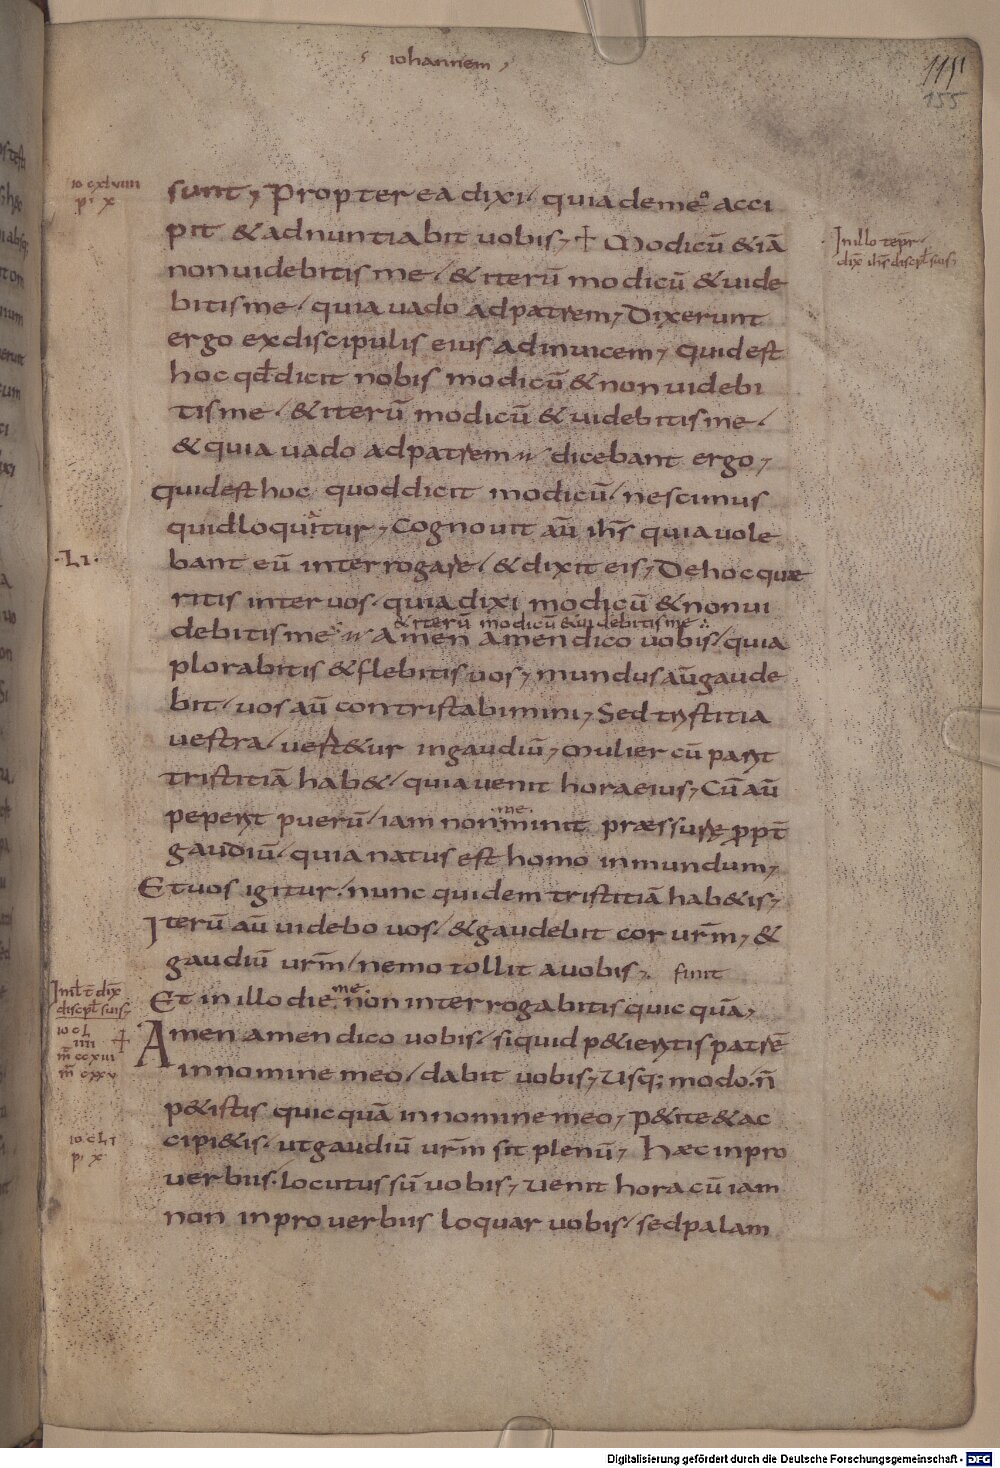 iohannem
155
io cxlviiii
pi x
sunt, Propterea dixi quia de meo acci
pit & adnuntiabit uobis, + Modicū & iā
In illo tēpr
dix ihs discipl suis,
non uidebitis me / & iterū modicū & uide
bitis me / quia uado ad patrem, Dixerunt
ergo ex discipulis eius ad inuicem, quid est
hoc qđ dicit nobis modicū & non uidebi
tis me / & iterū modicū & uidebitis me /
& quia uado ad patrem dicebant ergo,
quid est hoc quod dicit modicū / nescimus
quid loquitur, Cognouit aū ihs quia uole
·LI·
bant eū interrogare / & dixit eis, De hoc quæ
ritis inter uos · quia dixi modicū & non ui
& iterū modicū & uidebitis me
debitis me Amen amen dico uobis / quia
plorabitis & flebitis uos, mundus aū gaude
bit / uos aū contristabimini, Sed tristitia
uestra / uert&ur in gaudiū, mulier cū parit
tristitiā hab& / quia uenit hora eius, Cū aū
me
pepererit puerū / iam non minit præssuræ ppt
gaudiū / quia natus est homo in mundum,
Et uos igitur / nunc quidem tristitiā hab&is,
Iterū aū uidebo uos / & gaudebit cor urm, &
gaudiū urm / nemo tollit a uobis, finit
me
Et in illo die non interrogabitis quicquā,
discipl suis,
io cL
iiii +
m ccxiii
m cxxv
Amen amen dico uobis / siquid p&ieritis patrē
in nomine meo / dabit uobis, Usq; modo · n̄
p&istis quicquā in nomine meo, P&ite & ac
io cLi
pi x
cipi&is · ut gaudiū urm sit plenū, Hæc in pro
uerbiis · locutus sū uobis, uenit hora cū iam
non in prouerbiis loquar uobis / sed palam
Digitalisierung gefördert durch die Deutsche Forschungsgemeinschaft - DFG